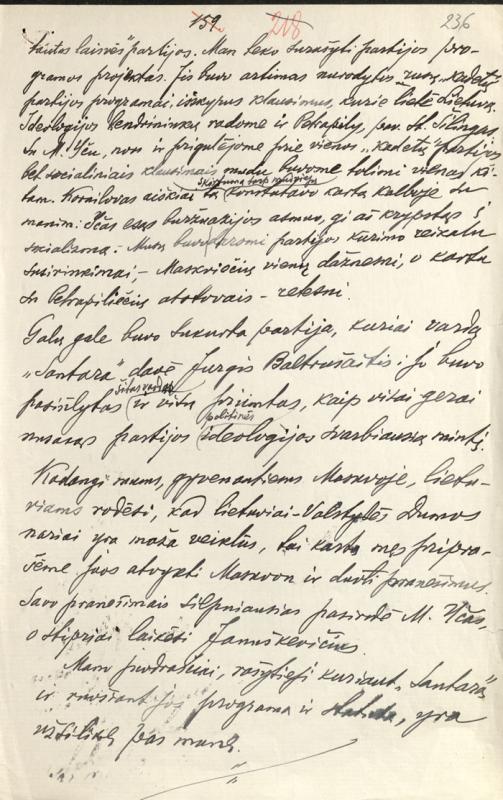 159 218 236
tautos laisvės" partijos. Man teko surašyti partijos pro-
gramos projektas. Jis buvo artimas nurodytos rusų „kadetų"
partijos programai, išskyrus klausimus, kurie lietė Lietuvą.
Ideologijos bendrininkų radome ir Petrapily, pav. St. Šilingas.
Su M. Yču, nors ir priguļėjome prie vienos „kadetų" partijos
bet socialiniais klausimais mudu buvome tolimi vienas ki-
skirtumą tarp mudviejų
tam. Kornilovas aiškiai tą konstatavo kartą kalboje su
manim: Yčas esąs buržuazijos asmuo, gi aš krypstąs į
socializmą. Mūsų partijos kūrimo reikalu
susirinkimai – Maskviečių vienų dažnesni, o kartu
su Petrapiliečių atstovais – retesni.
Galų gale buvo sukurta partija, kuriai vardą
„Santara" davė Jurgis Baltrušaitis: jo buvo
šitas vardas
pasiūlytas ir visų priimtas, kaip visai gerai
politinės
nusakąs partijos ideologijos svarbiausią mintį.
Kadangi mums, gyvenantiems Maskvoje, lietu-
viams rodėsi, kad lietuviai – Valstybės Dumos
nariai yra maža veiklūs, tai kartą mes pripra-
šėme juos atvykti Maskvon ir duoti pranešimus.
Savo pranešimais silpniausias pasirodė M. Yčas,
o stipriai laikėsi Januškevičius.
Mano juodraščiai, rašytieji kuriant „Santarą"
ir ruošiant jos programą ir statutą, yra
užsilikę pas mane.